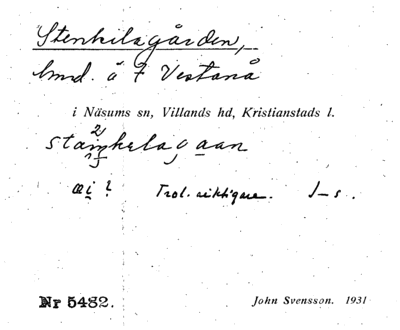 Stenkilagården,
hmd. å 7 Vestanå
i Näsums sn, Villands hd, Kristianstads l.
æi? Trol. riktigare. J–s.
Nr 5482. John Svensson. 1931